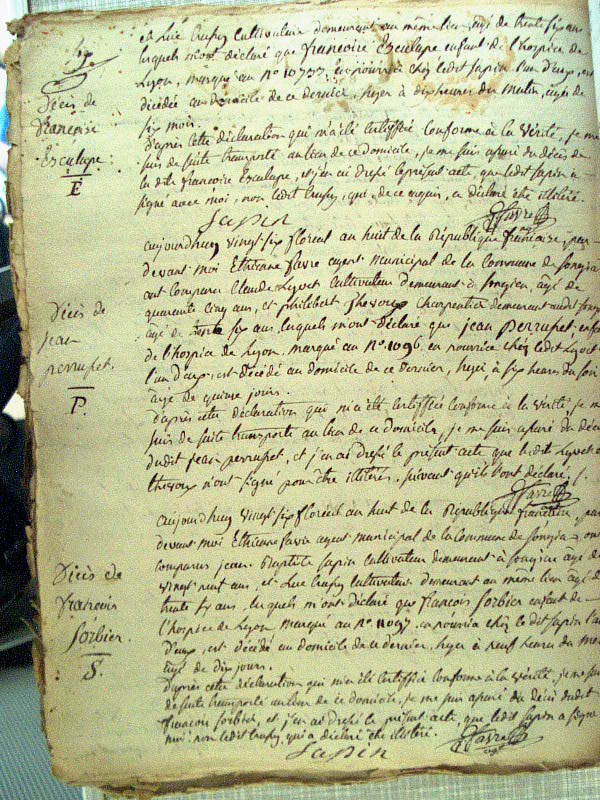 et Luc Crusy cultivateur demeurant au même lieu, agé de trente six ans
lesquels m'ont déclaré que francoise Esculape enfant de l'hospice de
Lyon, marqué au N° 10737, en nourrice chez ledit sapin l'un d'eux, est
décédée au domicile de ce dernier, hyer à dix heures du Matin, agée de
six mois.
D'après cette déclaration qui m'a été certiffiée conforme à la Vérité, je me
suis de suite transporté au lieu de ce domicile, je me suis assuré du décès de
la dite francoise Esculape, et j'en ai dressé le présent acte, que ledit sapin a
signé avec moi, non ledit Crusy, qui, de ce requis, a déclaré être illitéré.
Sapin
favre
agt
Décès de
francoise
Esculape.
E
aujourdhuy vingt six floreal an huit de la République francaise, par
devant moi Ethienne favre agent municipal de la Commune de songieu
ont comparu Claude Lyvet cultivateur demeurant à songieu, agé de
quarante cinq ans, et philibert thevoux charpentier demeurant audit
agé de trente six ans, lesquels m'ont déclaré que jean perrupet, enfant
de l'hospice de Lyon, marqué au N° 1096, en nourrice chez ledit Lyvet
l'un d'eux, est décédé au domicile de ce dernier, hyer, à six heures du soir
agé de quinze jours.
d'après cette déclaration qui m'a été certiffiée conforme à la Vérité, je me
suis de suite transporté au lieu de ce domicile, je me suis assuré du décès
dudit jean perrupet, et j'en ai dressé le présent acte que ledit Lyvet et
thevoux n'ont signé pour être illitérés, suivant qu'ils l'ont déclaré.
favre
Décès de
jean
perrupet.
P.
aujourdhuy vingt six floreal an huit de la République francaise par
devant moi Ethienne favre agent municipal de la Commune de songieu ont
comparu jean Baptiste sapin cultivateur demeurant à songieu agé de
vingt neuf ans, et Luc Crusy cultivateur demeurant au même lieu agé de
trente six ans, lesquels m'ont déclaré que francois sorbier enfant de
l'hospice de Lyon marqué au N° 11097, en nourrice chez ledit sapin l'un
d'eux, est décédé au domicile de ce dernier, hyer à neuf heures du matin
agé de dix jours.
d'après cette déclaration qui m'a été certiffiée conforme à la vérité, je me suis
de suite transporté au lieu de ce domicile, je me suis assuré du décès dudit
francois sorbier, et j'en ai dressé le présent acte, que ledit sapin a signé
moi, non ledit Crusy, qui a déclaré être illitéré.
Sapin
favre
agt
Décès de
francois
sorbier.
S.